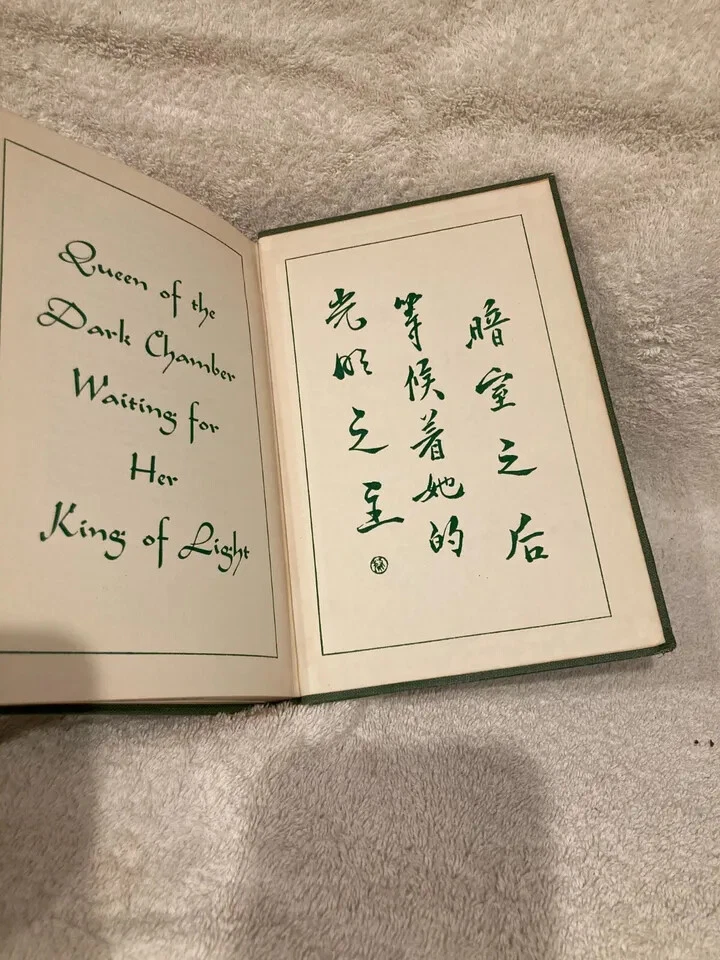 Queen of the
Dark Chamber
Waiting for
Her
King of Light
暗室之后
等候着她的
光明之主